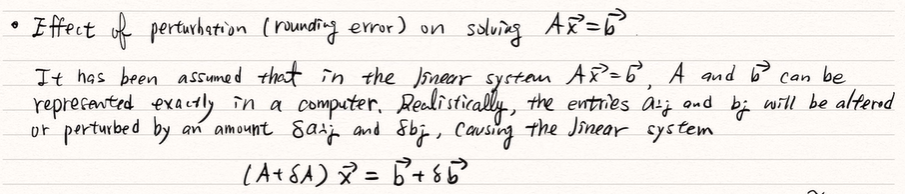 • Effect of perturbation (rounding error) on solving Ax⃗=b⃗
It has been assumed that in the linear system Ax⃗=b⃗, A and b⃗ can be
represented exactly in a computer. Realistically, the entries aᵢⱼ and bⱼ will be altered
or perturbed by an amount δaᵢⱼ and δbⱼ, causing the linear system
(A+δA) x⃗ = b⃗+δb⃗